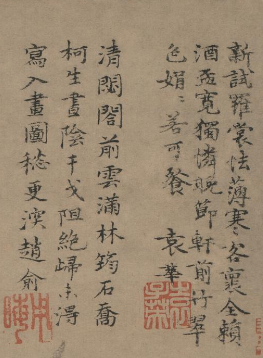 新試羅裳怯薄寒客裏全賴
酒盃寬獨憐晚節軒前竹翠
色娟〻若可餐 袁華
清閟閣前雲滿林筠石喬
柯生晝陰干戈阻絕歸未得
寫入畫圖愁更深趙俞